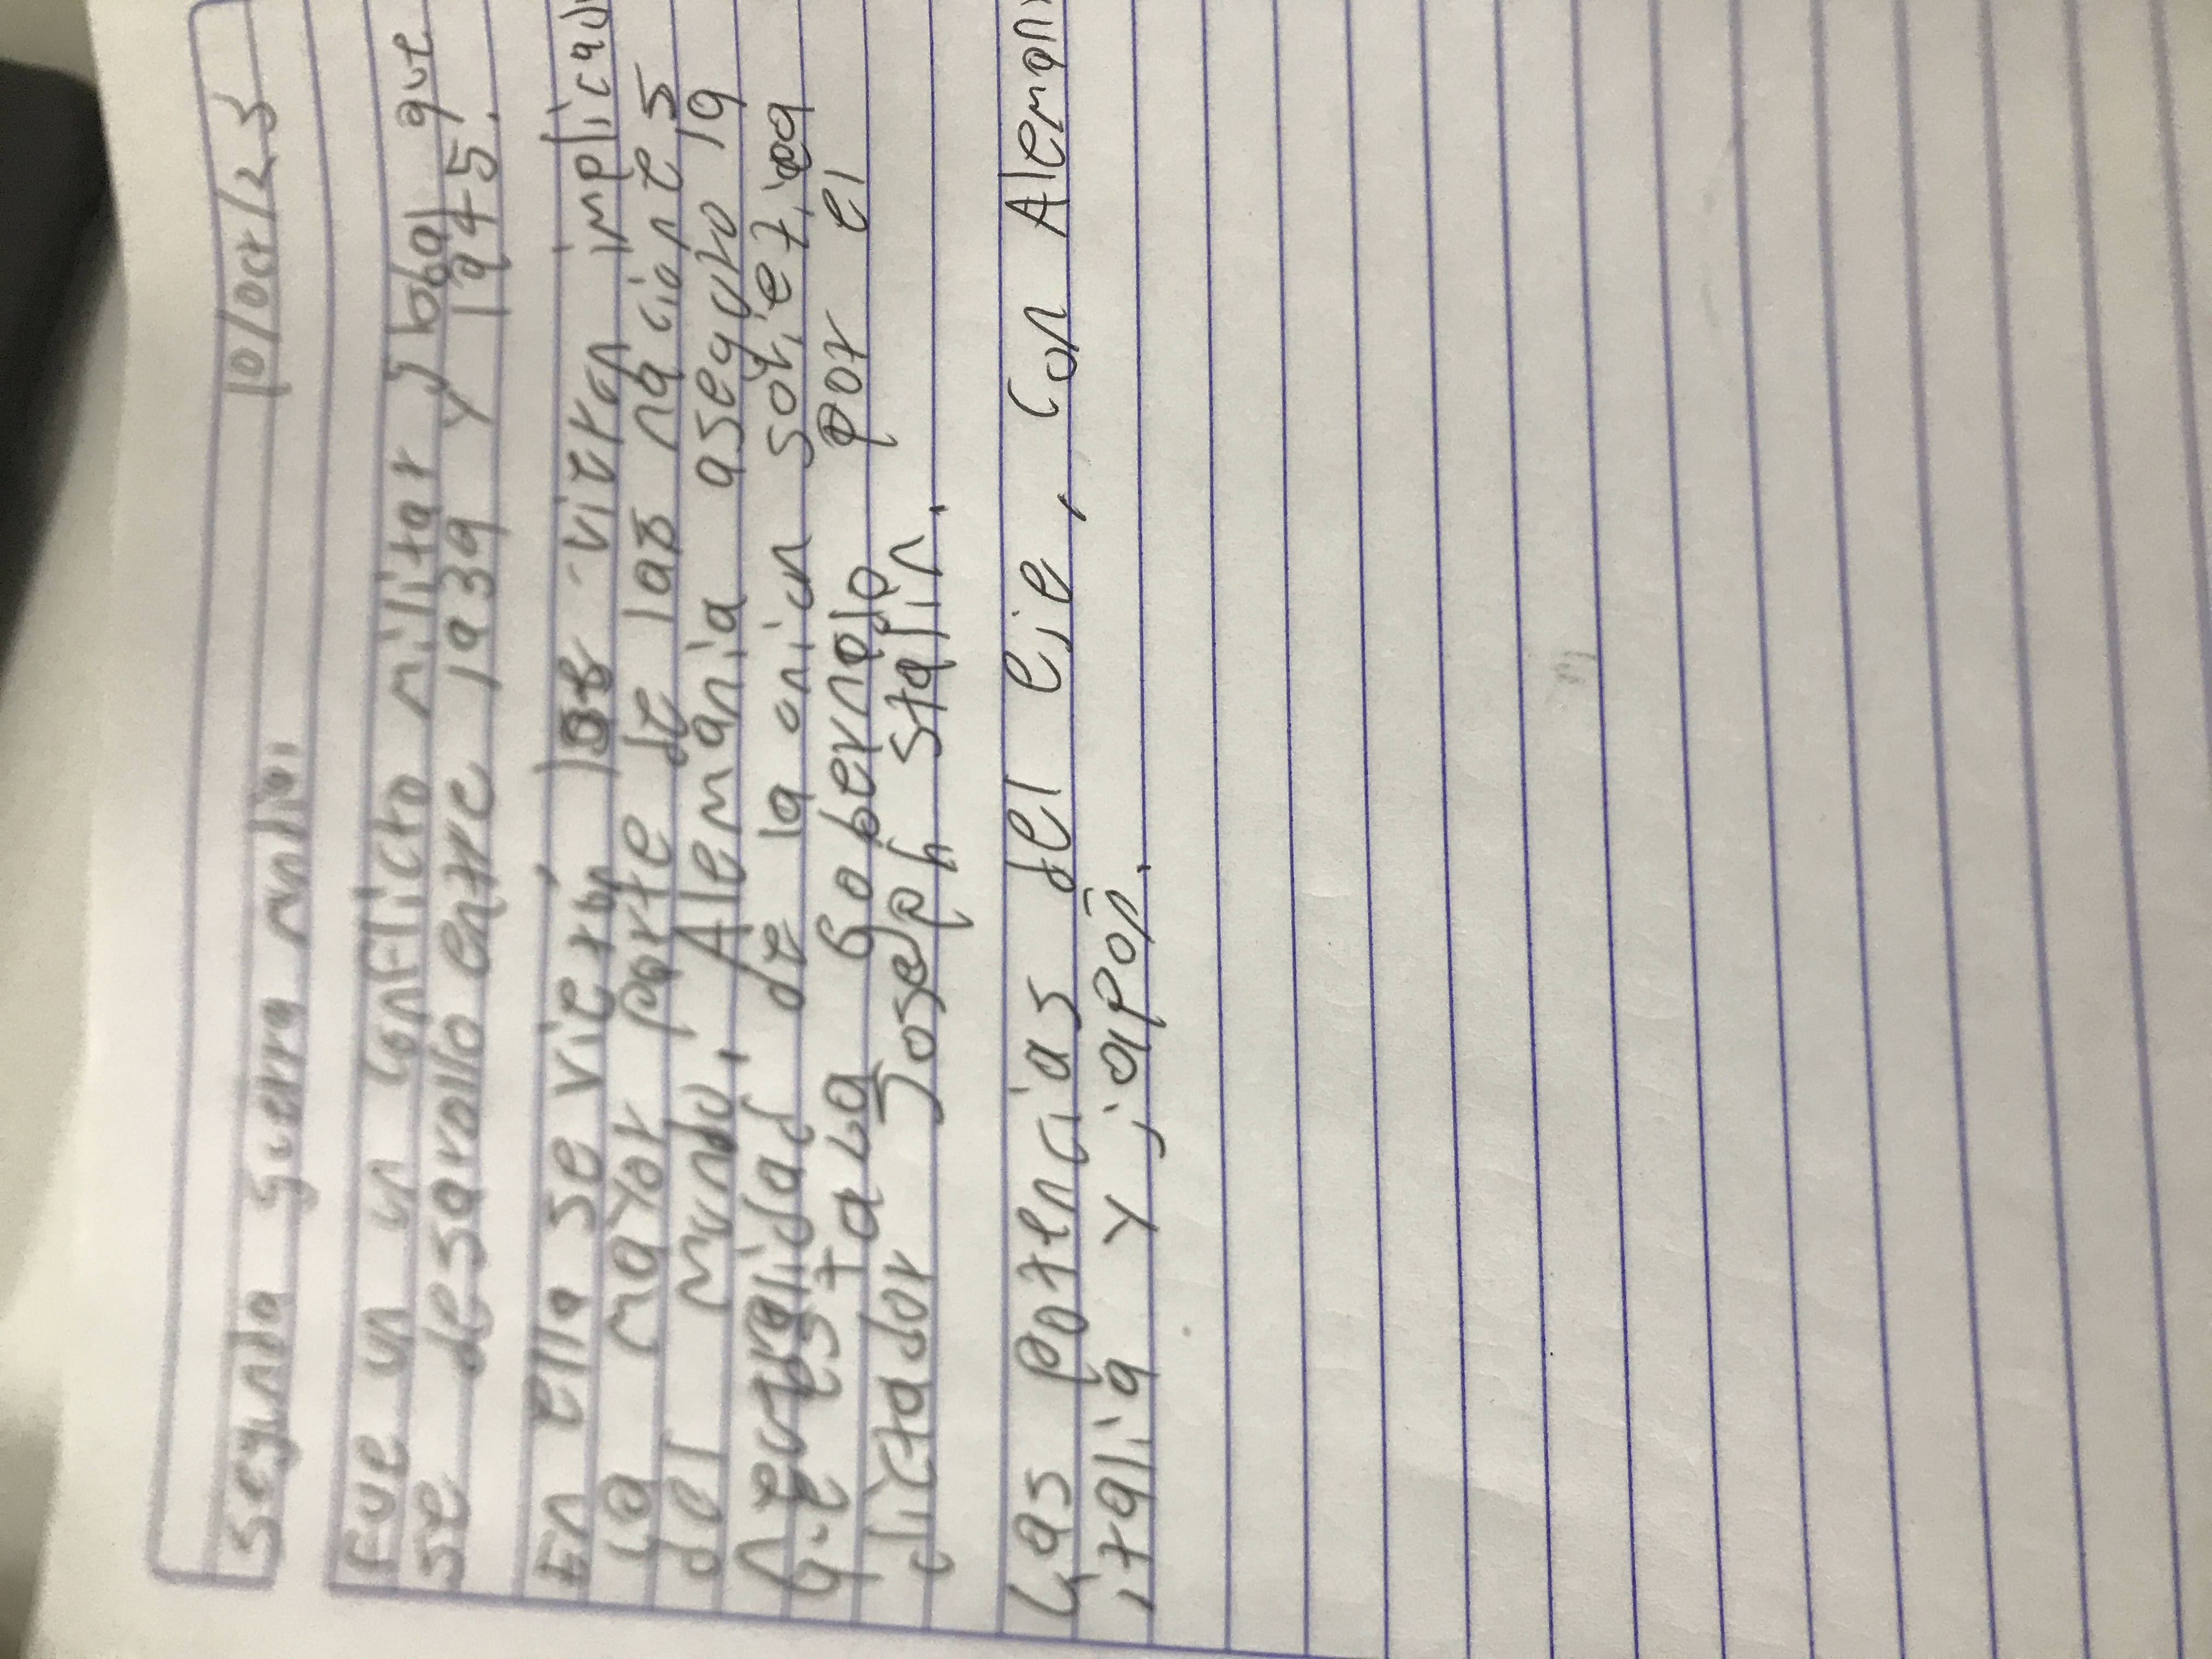 Segunda guerra mndial 10/oct/23
Fue un un conflicto militar global que
se desarollo entre 1939 y 1945.
En ella se vierón vieren implicad
la mayor parte de las nacione s
del mundo, Alemania aseguro la
neutralidad de la onion soviética
que estaba Gobernado por el
dictador Joseph stalin.
Las potencias del eje, Con Alemani
italia y japón.